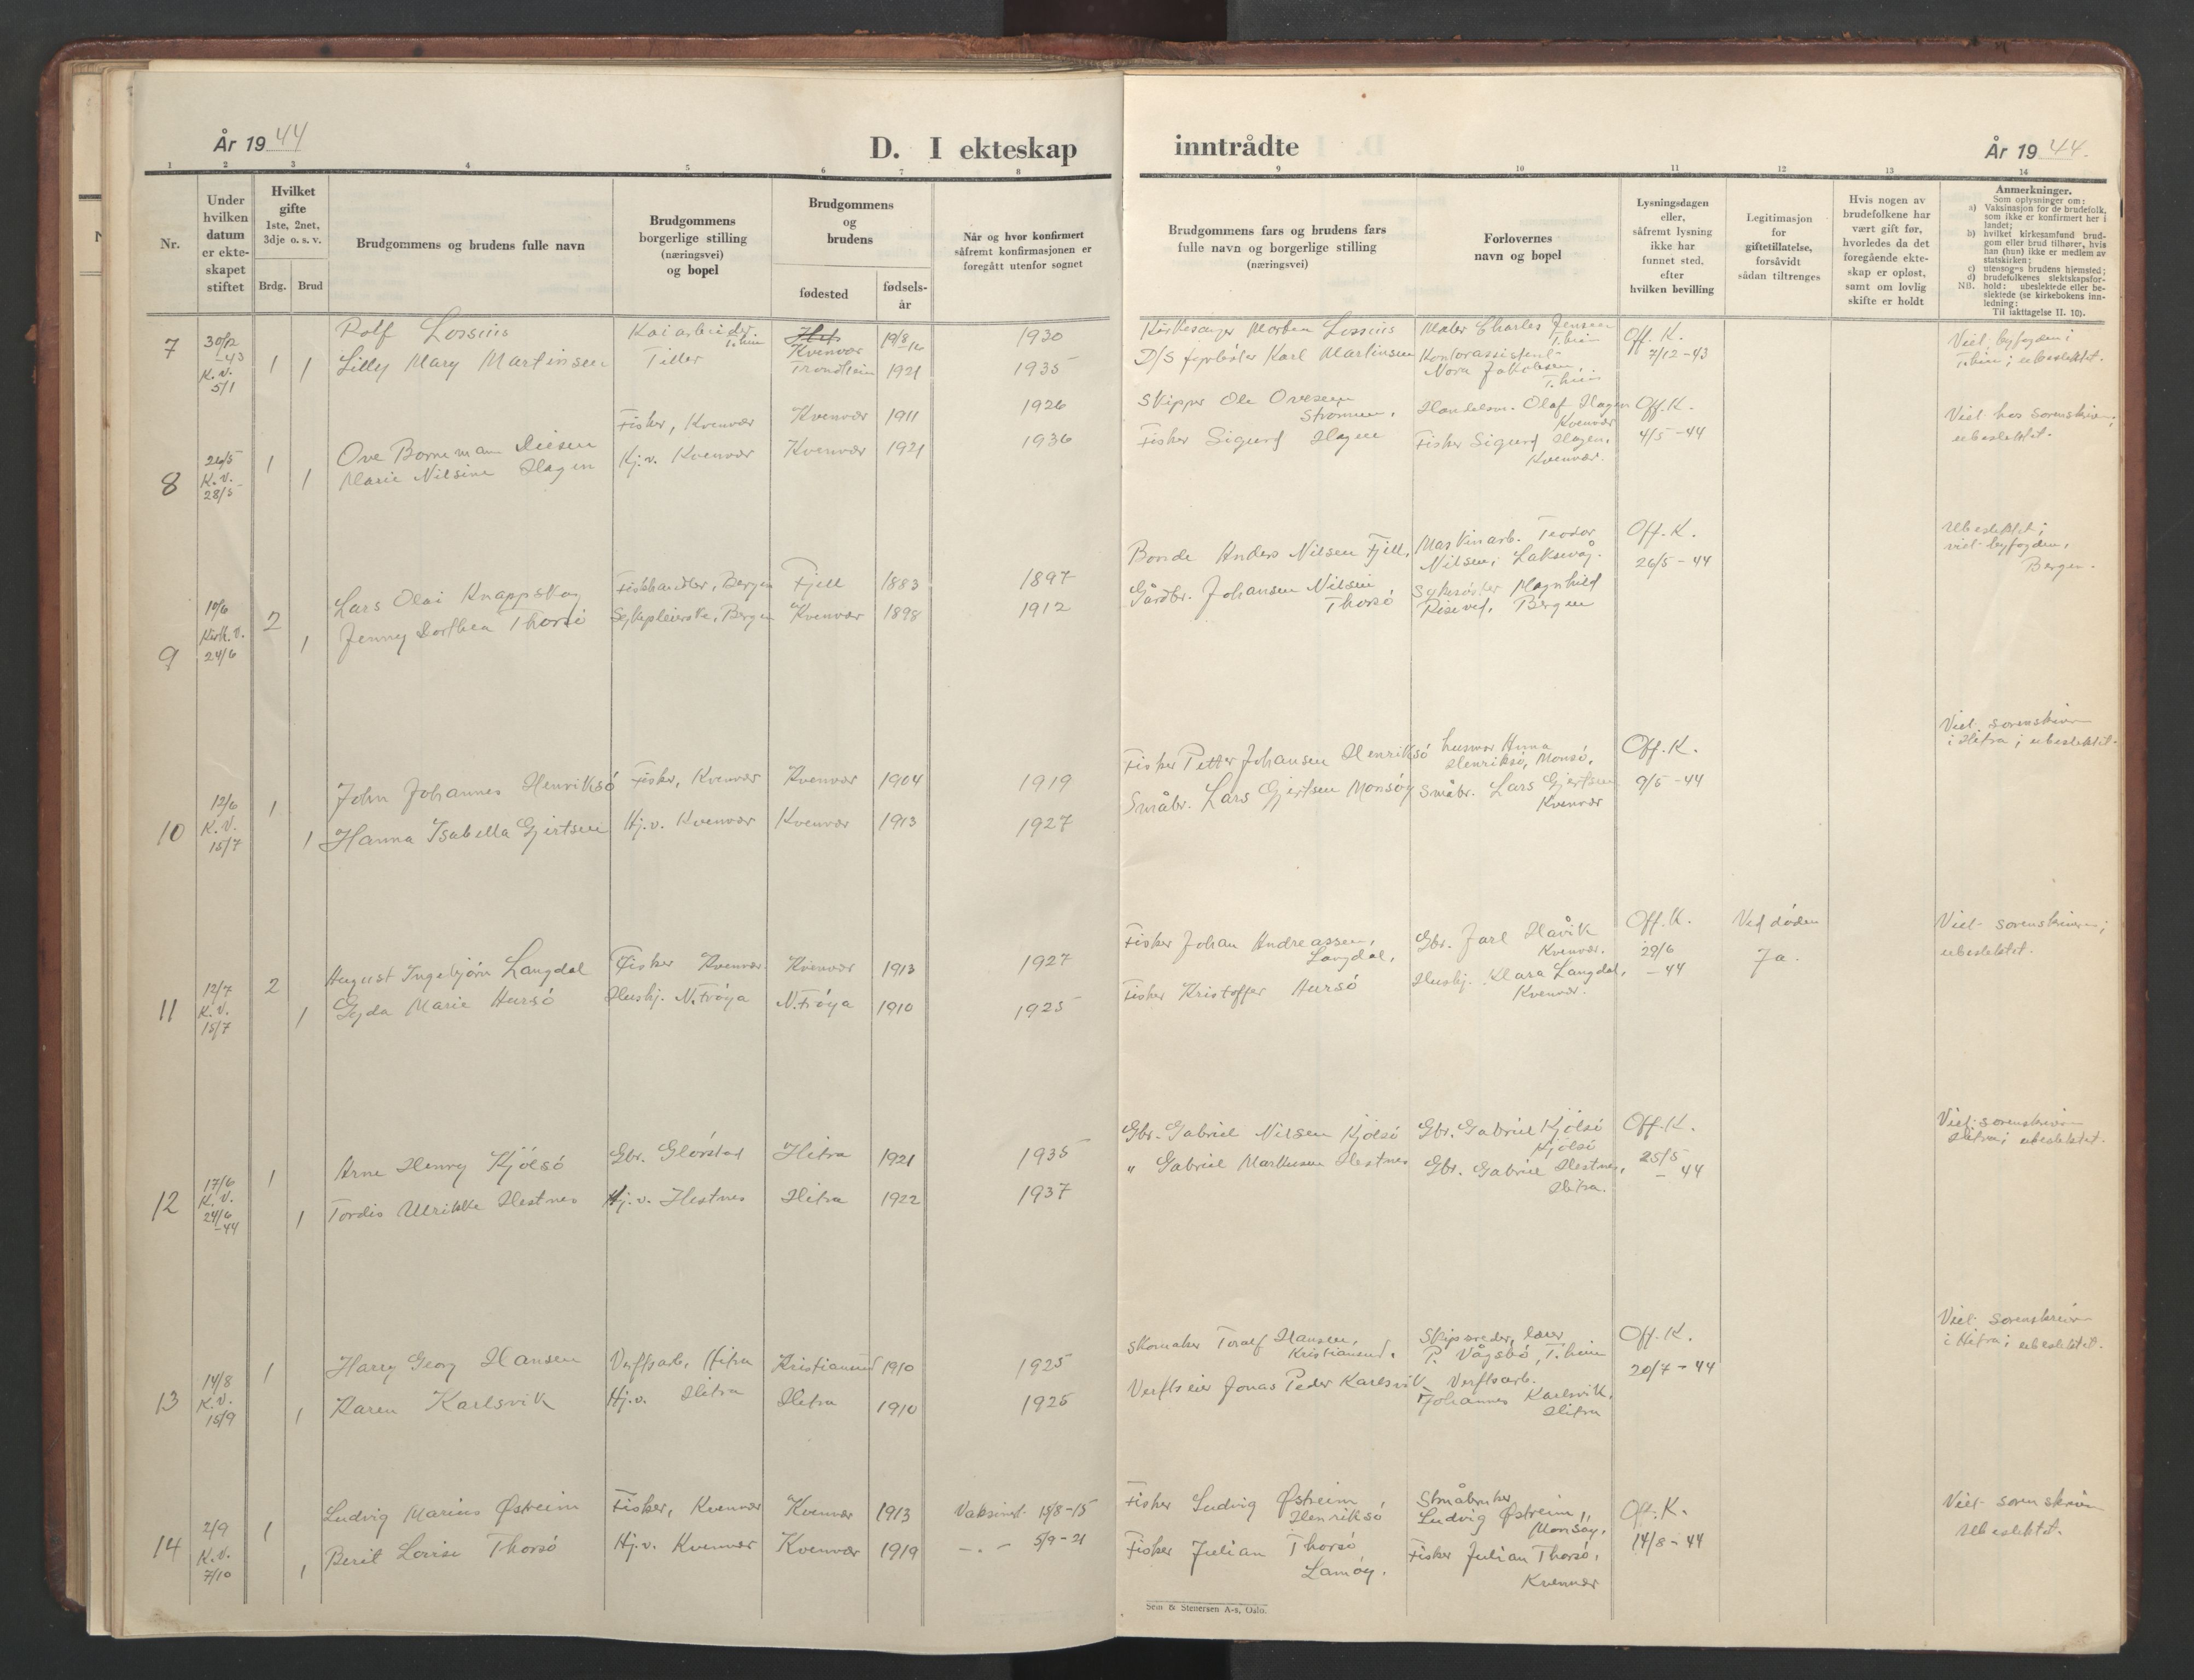 År 1944
D. I ekteskap
inntrådte
År 1944.
1 2 3 4 5 6 7 8 9 10 11 12 13 14
Nr.
Under hvilken datum er ekte-skapet stiftet
Hvilket gifte 1ste, 2net, 3dje o. s. v.
Brdg. Brud
Brudgommens og brudens fulle navn
Brudgommens borgerlige stilling (næringsvei) og bopel
Brudgommens og brudens
fødested
fødsels-år
Når og hvor konfirmert såfremt konfirmasjonen er foregått utenfor sognet
Brudgommens fars og brudens fars fulle navn og borgerlige stilling (næringsvei)
Forlovernes navn og bopel
Lysningsdagen eller, såfremt lysning ikke har funnet sted, efter hvilken bevilling
Legitimasjon for giftetillatelse, forsåvidt sådan tiltrenges
Hvis nogen av brudefolkene har vært gift før, hvorledes da det foregående ekte-skap er opløst, samt om lovlig skifte er holdt
Anmerkninger.
Som oplysninger om:
a) Vaksinasjon for de brudefolk, som ikke er konfirmert her i landet;
b) hvilket kirkesamfund brud-gom eller brud tilhører, hvis han (hun) ikke er medlem av statskirken;
c) utensogns brudens hjemsted;
d) brudefolkenes slektskapsfor-hold: ubeslektede eller be-slektede (se kirkebokens inn-ledning:
NB. Til iakttagelse II. 10).
7 30/12 -43 K.V. 5/1
1 Rolf Lossius Kaiarbeider T.heim Kvenvær 19/8 16 1930 Kirkesanger Morten Lossius Maler Charles Jensen T.heim Off. K. Viet byfogden i
1 Lilly Mary Martinsen Tiller Trondheim 1921 1935 D/S fyrbøter Karl Martinsen Kontorassistent Nora Jakobsen, T.heim 7/12-43 T.heim; ubeslektet.
8 26/5 K.V. 28/5
1 Ove Bornemann Fisker, Kvenvær Kvenvær 1911 1926 Skipper Ole Ovesen Strømmen, Handelsm. Olaf Hagen Kvenvær Off. K. Viet hos sorenskriver;
1 Marie Nilsine Hagen Hj.v. Kvenvær Kvenvær 1921 1936 Fisker Sigurd Hagen Fisker Sigurd Hagen, Kvenvær. 4/5-44 ubeslektet.
9 10/6 Kirk.V. 24/6
2 Lars Olai Knappskog Fiskhandler, Bergen Fjell 1883 1897 Bonde Anders Nilsen Fjell, Maskinarb. Teodor Nilsen, Laksevåg. Off. K. Ubeslektet;
1 Jenny Dorthea Thorsø Sykepleierske, Bergen Kvenvær 1898 1912 Gårdbr. Johansen Nilsen Thorsø Sykesøster Magnhild Bergen 26/5-44 viet byfogden, Bergen.
10 12/6 K.V. 15/7
1 John Johannes Henriksø Fisker, Kvenvær Kvenvær 1904 1919 Fisker Petter Johansen Henriksø husmor Anna Henriksø, Monsø, Off. K. Viet sorenskriver
1 Hanna Isabella Gjertsen Hj.v. Kvenvær Kvenvær 1913 1927 Småbr. Lars Gjertsen Monsøy Småbr. Lars Gjertsen Kvenvær 9/5-44 i Hitra; ubeslektet.
11 12/7 K.V. 15/7
2 August Ingebjørn Langdal Fisker Kvenvær Kvenvær 1913 1927 Fisker Johan Andreassen, Langdal, Gbr. Jarl Håvik Kvenvær. Off. K. Ved døden Viet sorenskriver;
1 Gyda Marie Aursø Hushj. N.Frøya N.Frøya 1910 1925 Fisker Kristoffer Aursø Hushj. Klara Langdal, Kvenvær. 29/6 -44 Ja. ubeslektet.
12 17/6 K.V. 24/6 -44
1 Arne Henry Kjølsø Gbr. Glørstad Hitra 1921 1935 Gbr. Gabriel Nilsen Kjølsø Gbr. Gabriel Kjølsø Kjølsø Off. K. Viet sorenskriver
1 Tordis Ulrikke Hestnes Hj.v. Hestnes Hitra 1922 1937 " Gabriel Markussen Hestnes Gbr. Gabriel Hestnes, Hitra. 25/5 -44 Hitra; ubeslektet.
13 14/8 K.V. 15/9
1 Harry Georg Hansen Verftsarb. Hitra Kristiansund 1910 1925 Skomaker Toralf Hansen, Kristiansund. Skipsreder, P. Vågsbø, T.heim Off. K. Viet sorenskriver
1 Karen Karlsvik Hj.v. Hitra Hitra 1910 1925 Verftseier Jonas Peder Karlsvik Verftsarb. Johannes Karlsvik, Hitra 20/7-44 i Hitra; ubeslektet.
14 2/9 K.V. 7/10
1 Ludvig Marius Østreim Fisker, Kvenvær Kvenvær 1913 Vaksinert 18/8-15 Fisker Ludvig Østreim Henriksø Småbruker Ludvig Østreim, Monsøy, Off. K. Viet sorenskriver
1 Berit Lovise Thorsø Hj.v. Kvenvær Kvenvær 1919 -"- 5/9-21 Fisker Julian Thorsø Lamøy. Fisker Julian Thorsø, Kvenvær 14/8-44 Ubeslektet.
Sem & Stenersen A-s, Oslo.